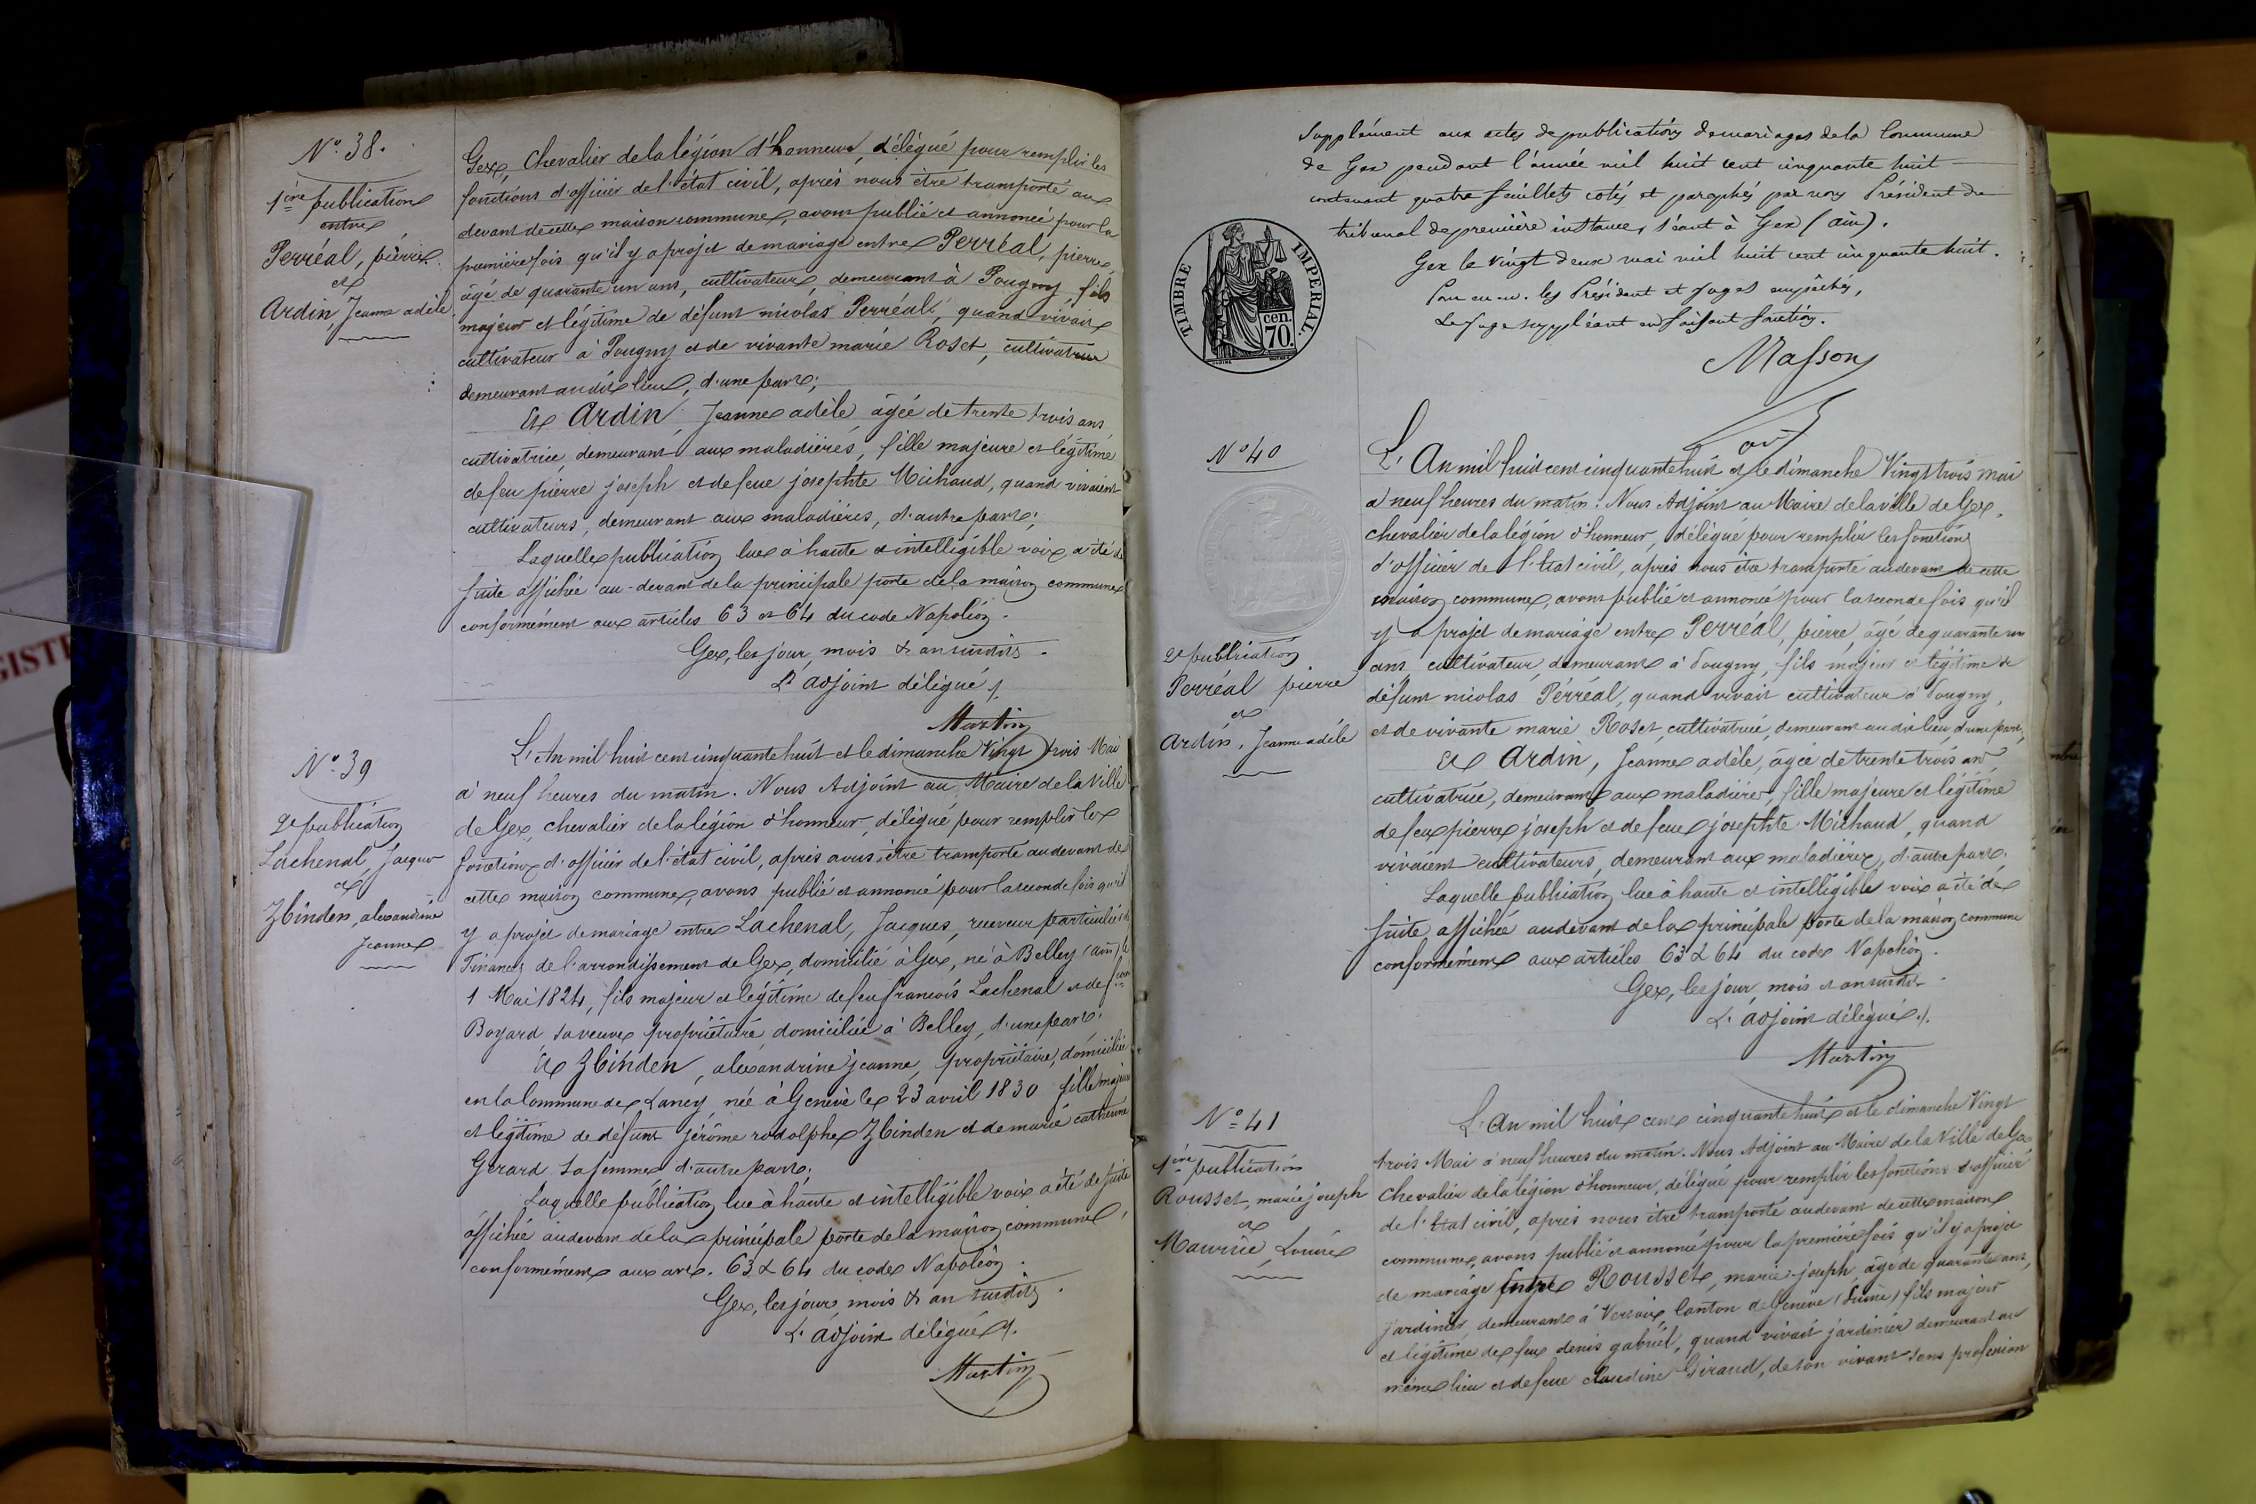 N° 38.
1ère publication
entre
Perréal, pierre
et
Ardin, Jeanne adèle
Gex, Chevalier de la légion d'honneur, délégué pour remplir les
fonctions d'officier de l'état civil, après nous être transporté au
devant de cette maison commune, avons publié et annoncé pour la
première fois qu'il y a projet de mariage entre Perréal, pierre,
âgé de quarante un ans, cultivateur, demeurant à Pougny, fils
majeur et légitime de défunt nicolas Perréal, quand vivait
cultivateur à Pougny et de vivante marie Roset, cultivatrice
demeurant au dit lieu, d'une part;
Et Ardin, Jeanne adèle, âgée de trente trois ans
cultivatrice, demeurant aux maladières, fille majeure et légitime
de feu pierre joseph et de feue josephte Michaud, quand vivaient
cultivateurs, demeurant aux maladières, d'autre part;
Laquelle publication lue à haute et intelligible voix a été de
suite affichée au-devant de la principale porte de la maison commune
conformément aux articles 63 et 64 du code Napoléon.
Gex, les jour, mois & an susdits.
L'adjoint délégué
Martin
N° 39
2e publication
Lachenal, jacques
et
Zbinden, alexandrine
Jeanne
L'An mil huit cent cinquante huit et le dimanche Vingt trois Mai
à neuf heures du matin. Nous Adjoint au Maire de la Ville
de Gex, chevalier de la légion d'honneur, délégué pour remplir les
fonctions d'officier de l'état civil, après avons être transporté au devant de
cette maison commune, avons publié et annoncé pour la seconde fois qu'il
y a projet de mariage entre Lachenal, Jacques, receveur particulier
Finances de l'arrondissement de Gex, domicilié à Gex, né à Belley (ain) le
1 Mai 1824, fils majeur et légitime de feu françois Lachenal et de
Boyard sa veuve propriétaire, domiciliée à Belley, d'une part.
Et Zbinden, alexandrine jeanne, propriétaire, domiciliée
en la Commune de Lancy, née à Genève le 23 avril 1830 fille majeure
et légitime de défunt jérôme rodolphe Zbinden et de marie catherine
Gerard sa femme d'autre part;
Laquelle publication lue à haute et intelligible voix a été de suite
affichée au devant de la principale porte de la maison commune,
conformément aux art. 63 & 64 du code Napoléon.
Gex, les jour, mois & an susdits.
L'adjoint délégué
Martin
Supplément aux actes de publications de mariages de la Commune
de Gex pendant l'année mil huit cent cinquante huit
contenant quatre feuillets cotés et paraphés par nous Président du
tribunal de première instance, séant à Gex (ain).
Gex le vingt deux mai mil huit cent cinquante huit.
Pour les Président et juges empêchés,
Le juge suppléant en faisant fonction.
Masson
TIMBRE IMPERIAL.
cen.
70.
N° 40
2e publication
Perréal pierre
et
Ardin, Jeanne adèle
L'An mil huit cent cinquante huit et le dimanche Vingt trois mai
à neuf heures du matin. Nous Adjoint au Maire de la ville de Gex,
chevalier de la légion d'honneur, délégué pour remplir les fonctions
d'officier de l'Etat civil, après nous être transporté au devant de cette
maison commune, avons publié et annoncé pour la seconde fois qu'il
y a projet de mariage entre Perréal, pierre, âgé de quarante un
ans, cultivateur, demeurant à Pougny, fils majeur et légitime de
défunt nicolas Perréal, quand vivait cultivateur à Pougny,
et de vivante marie Roset, cultivatrice, demeurant au dit lieu, d'une part,
Et Ardin, Jeanne adèle, âgée de trente trois ans,
cultivatrice, demeurant aux maladières, fille majeure et légitime
de feu pierre joseph et de feue josephte Michaud, quand
vivaient cultivateurs, demeurant aux maladières, d'autre part.
Laquelle publication lue à haute et intelligible voix a été de
suite affichée au devant de la principale porte de la maison commune
conformément aux articles 63 & 64 du code Napoléon.
Gex, les jour, mois et an susdits.
L'adjoint délégué
Martin
N° 41
1ère publication
Rousset, marie joseph
et
Maurice, Louise
L'An mil huit cent cinquante huit et le dimanche Vingt
trois Mai à neuf heures du matin. Nous Adjoint au Maire de la Ville de Gex
Chevalier de la légion d'honneur, délégué pour remplir les fonctions d'officier
de l'Etat civil, après nous être transporté au devant de cette maison
commune, avons publié et annoncé pour la première fois qu'il y a projet
de mariage entre Rousset, marie-joseph, âgé de quarante ans,
jardinier demeurant à Versoix, Canton de Genève (Suisse) fils majeur
et légitime de feu denis gabriel, quand vivait jardinier demeurant au
même lieu et de feue Claudine Girand, de son vivant sans profession